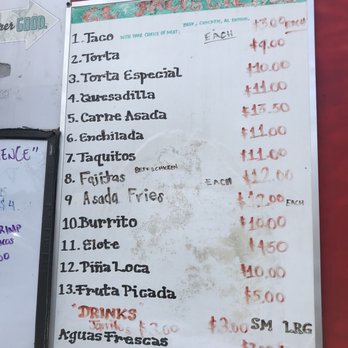 GOOD.
BEEF, CHICKEN, AL PASTOR
1. Taco WITH YOUR CHOICE OF MEAT; EACH $3.00 EACH
2. Torta $9.00
3. Torta Especial $10.00
4. Quesadilla $11.00
5. Carne Asada $13.50
6. Enchilada $11.00
7. Taquitos $11.00
8. Fajitas BEEF & CHICKEN EACH $12.00
9 Asada Fries $12.00 EACH
10. Burrito $10.00
11. Elote $4.50
12. Piña Loca $10.00
13. Fruta Picada $5.00
"DRINKS"
Jarritos $3.00 $3.00 SM LRG
Aguas Frescas
ENCE"